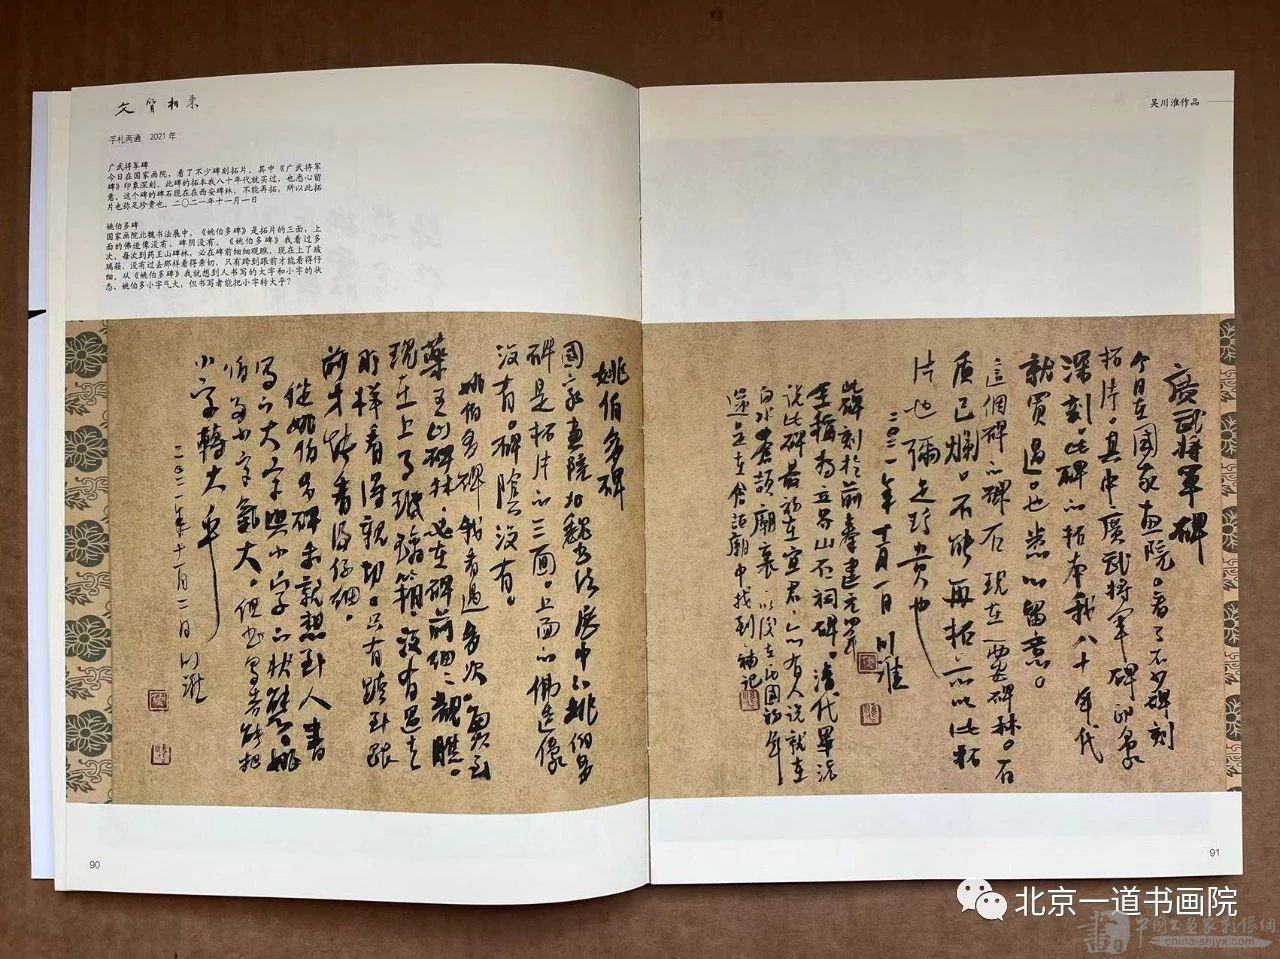 文質相柔
手札两通 2021年
广武将军碑
今日在国家画院，看了不少碑刻拓片。其中《广武将军
碑》印象深刻。此碑的拓本我八十年代就买过，也悉心留
意。这个碑的碑石现在在西安碑林，不能再拓，所以此拓
片也弥足珍贵也。二〇二一年十一月一日
姚伯多碑
国家画院北魏书法展中，《姚伯多碑》是拓片的三面、上
面的佛造像没有，碑阴没有。《姚伯多碑》我看过多
次，每次到药王山碑林，必在碑前细细观瞧。现在上了玻
璃箱，没有过去那样看得亲切，只有跨到跟前才能看得仔
细。从《姚伯多碑》我就想到人书写的大字和小字的状
态。姚伯多小字气大，但书写者能把小字转大乎？
吴川淮作品
廣武将軍碑
今日在國家画院。看了不少碑刻
拓片。其中廣武将軍碑印象
深刻。此碑的拓本我八十年代
就買過。也悉心留意。
這個碑的碑石現在西安碑林。石
质已爛。不能再拓。所以此拓
片也彌足珍贵也
二〇二一年十一月一日川淮
此碑刻於前秦建元四年
全稱為立界山石祠碑。清代畢沅
說此碑最初在宜君，亦有人說就在
白水蒼頡廟裏。以後在民国初年
還是在倉頡廟中找到補記
姚伯多碑
國家画院北魏书法展中的姚伯多
碑是拓片的三面。上面的佛造像
没有。碑陰没有。
姚伯多碑我看過多次。每次到
藥王山碑林。必在碑前细细觀瞧。
現在上了玻璃箱。没有過去
那様看得親切。只有跨到跟
前才能看得仔细。
從姚伯多碑我就想到人書
写的大字與小字的状態。姚
伯多小字氣大。但书寫者能把
小字轉大乎
二〇二一年十一月二日川淮
90
91
北京一道书画院
中國书画家影像網
china-shjyx.com